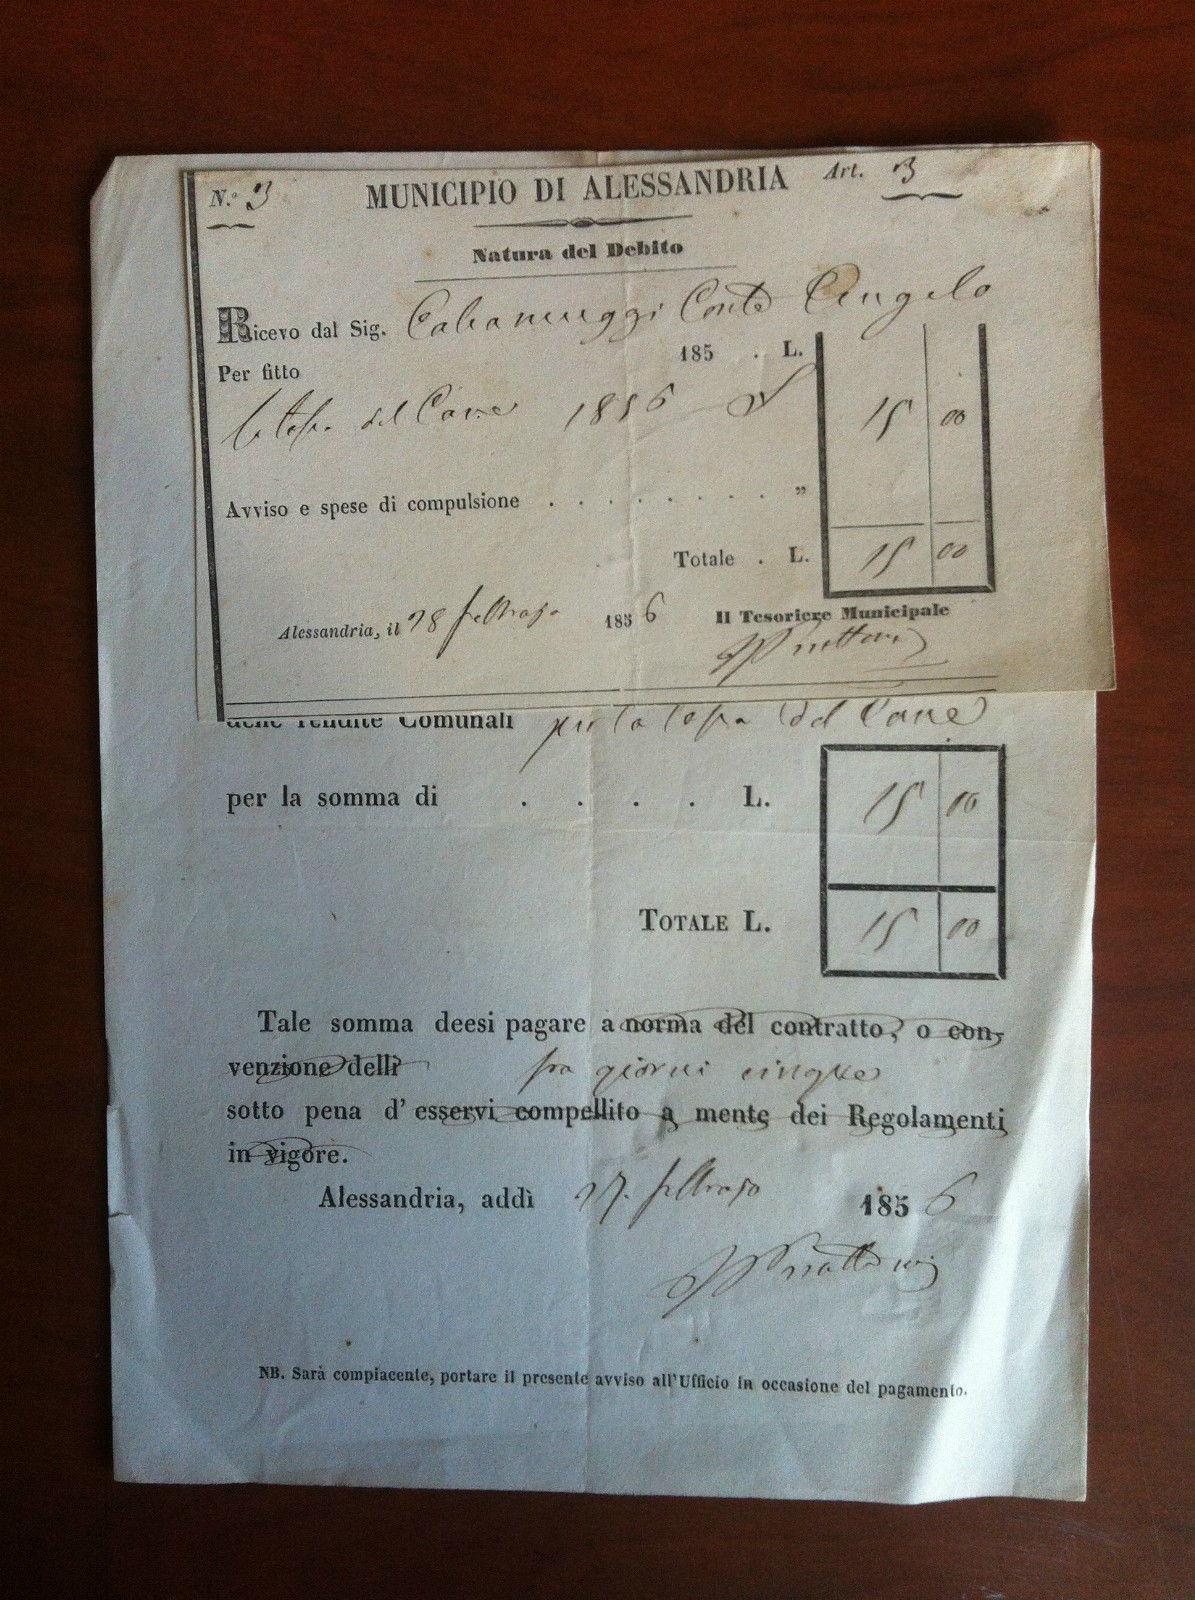 N.° 3 MUNICIPIO DI ALESSANDRIA Art. 3
Natura del Debito
Ricevo dal Sig. Conte Angelo
Per fitto 185 . L.
la tassa del Cane 1856 15 00
Avviso e spese di compulsione . . . . . . . . . "
Totale . L. 15 00
Alessandria, il 28 febbrajo 1856 Il Tesoriere Municipale
delle rendite Comunali per la tassa del Cane
per la somma di . . . . L. 15 00
TOTALE L. 15 00
Tale somma deesi pagare a norma del contratto, o con-
venzione delli fra giorni cinque
sotto pena d'esservi compellito a mente dei Regolamenti
in vigore.
Alessandria, addì 27. febbrajo 1856
NB. Sarà compiacente, portare il presente avviso all'Ufficio in occasione del pagamento.